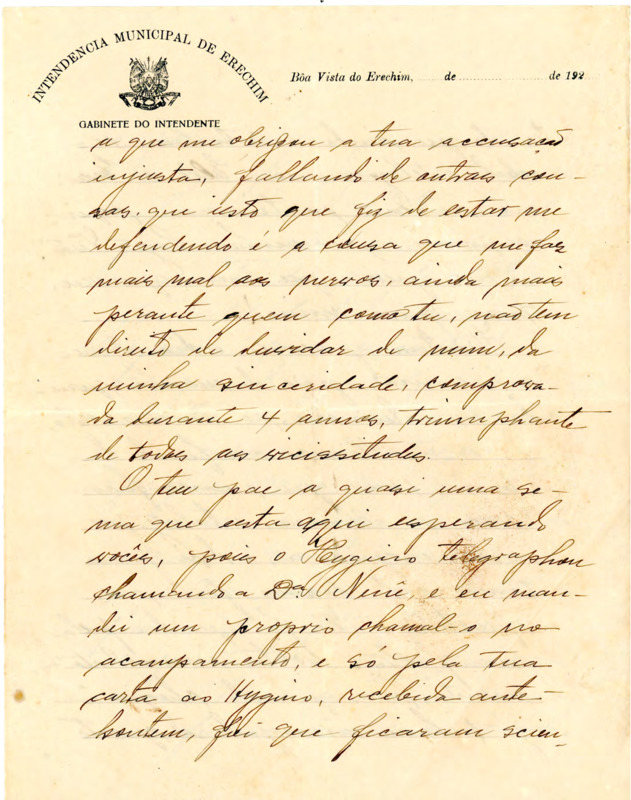 INTENDENCIA MUNICIPAL DE ERECHIM
GABINETE DO INTENDENTE
Bôa Vista do Erechim, de de 192
a que me obrigou a tua accusação
injusta, fallando de outras cou-
sas. que isto que fiz de estar me
defendendo é a cousa que me faz
mais mal aos nervos, ainda mais
perante quem como tu, não tem
direito de duvidar de mim, da
minha sinceridade, comprova-
da durante 4 annos, triumphante
de todas as vicissitudes.
O teu pae a quasi uma se-
ma que esta aqui esperando
vocês, pois o Hygino telegraphou
chamando a Da. Nenê, e eu man-
dei um proprio chamal-o no
acampamento, e só pela tua
carta ao Hygino, recebida ante-
hontem, foi que ficaram scien-